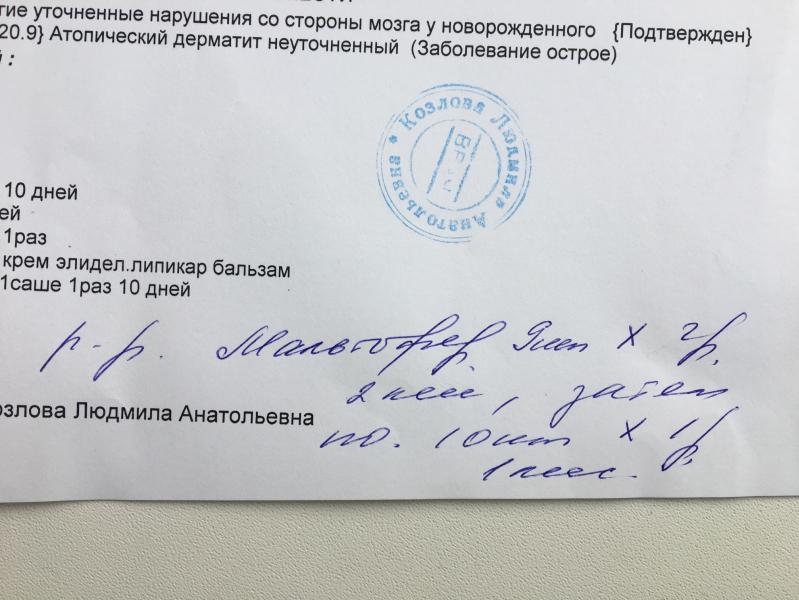 гие уточненные нарушения со стороны мозга у новорожденного {Подтвержден}
20.9} Атопический дерматит неуточненный (Заболевание острое)
:
Козлова Людмила Анатольевна
ВРАЧ
10 дней
ей
1раз
крем элидел.липикар бальзам
1саше 1раз 10 дней
р-р. Мальтофер 9кап х 2р.
2 мес, затем
озлова Людмила Анатольевна
по. 10кап х 1р
1 мес.